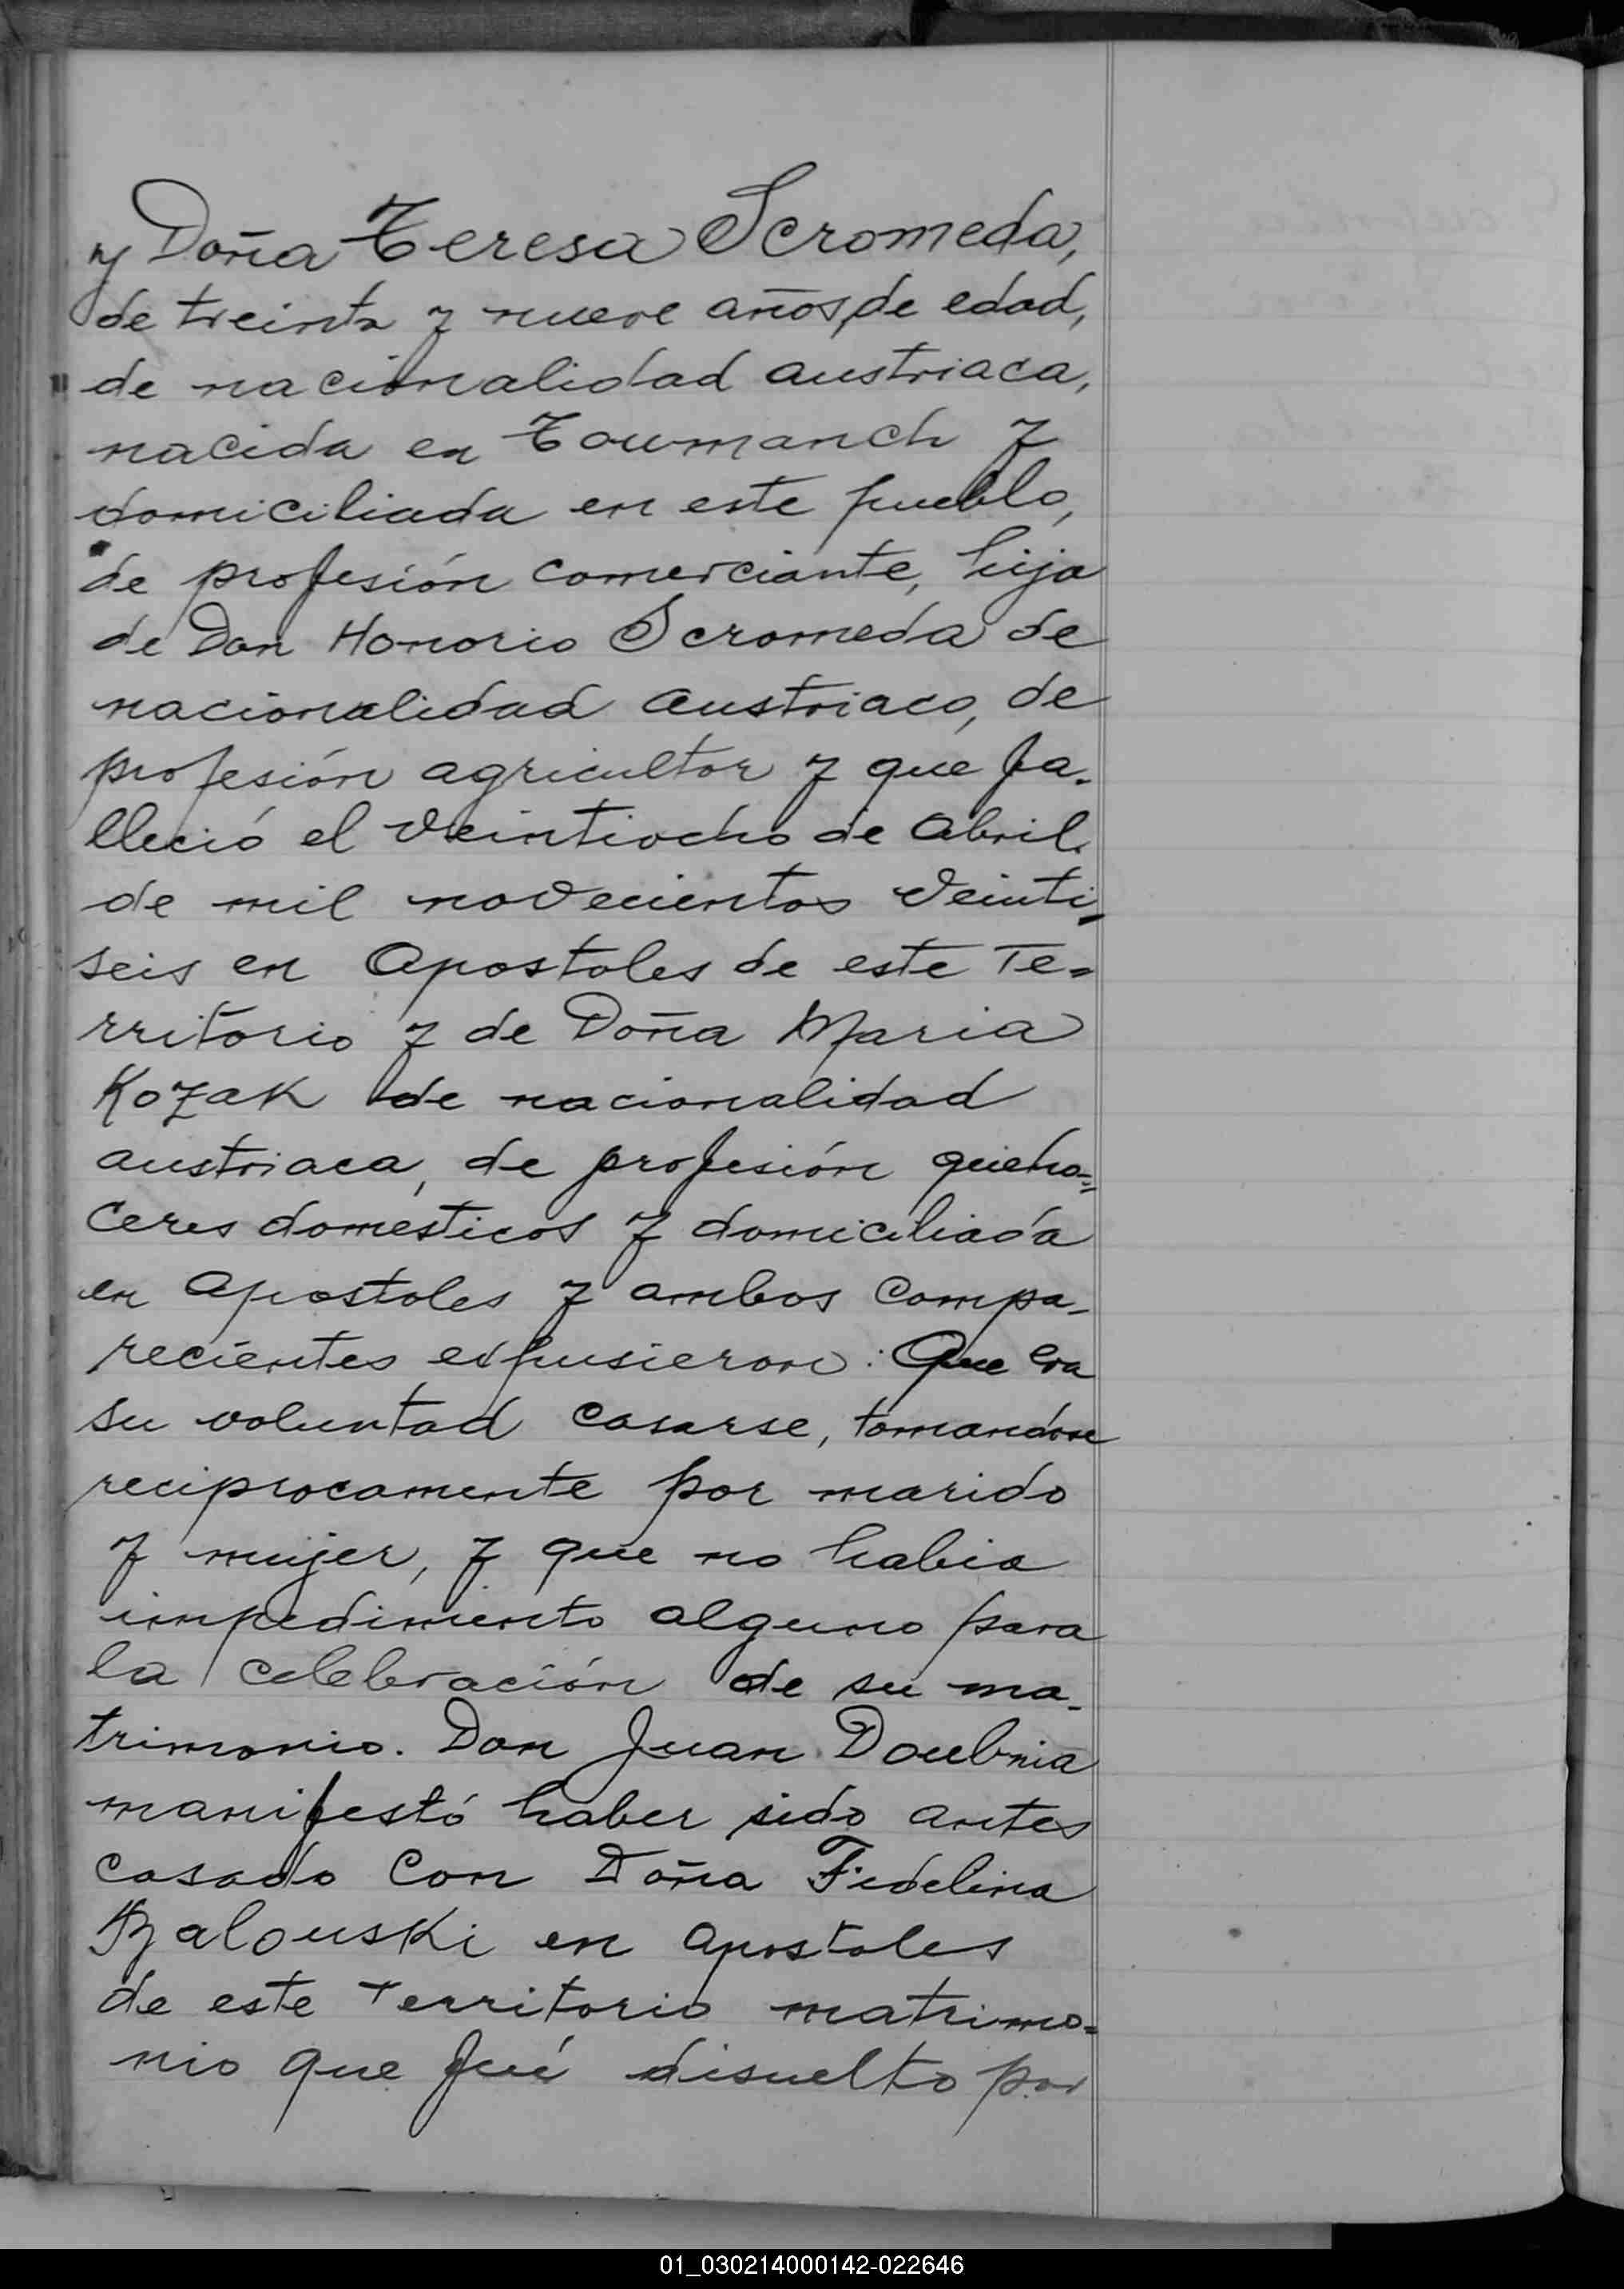 y Doña Teresa Scromeda,
de treinta y nueve años, de edad,
de nacionalidad austriaca,
nacida en Toumanch y
domiciliada en este pueblo,
de profesión comerciante, hija
de Don Honorio Scromeda de
nacionalidad austriaco, de
profesión agricultor y que fa-
lleció el veintiocho de Abril
de mil novecientos veinti-
seis en Apostoles de este Te=
rritorio y de Doña Maria
Kozak de nacionalidad
austriaca, de profesión queha=
ceres domesticos y domiciliada
en Apostoles y ambos compa-
recientes expusieron: Que era
su voluntad casarse, tomandose
reciprocamente por marido
y mujer, y que no habia
impedimento alguno para
la celebración de su ma-
trimonio. Don Juan Doubnia
manifestó haber sido antes
casado con Doña Fidelina
en Apostoles
de este Territorio matrimo=
nio que fué disuelto por
01_030214000142-022646